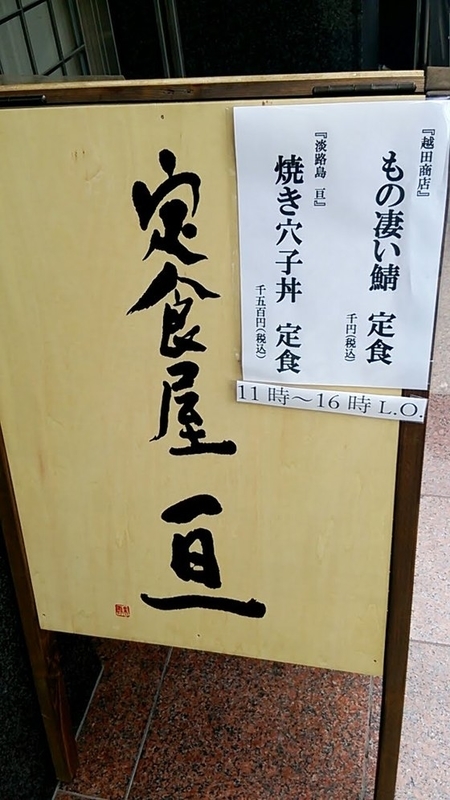 『越田商店』
もの凄い鯖 定食
千円(税込)
『淡路島 亘』
焼き穴子丼 定食
千五百円(税込)
11時～16時 L.O.
定食屋 亘